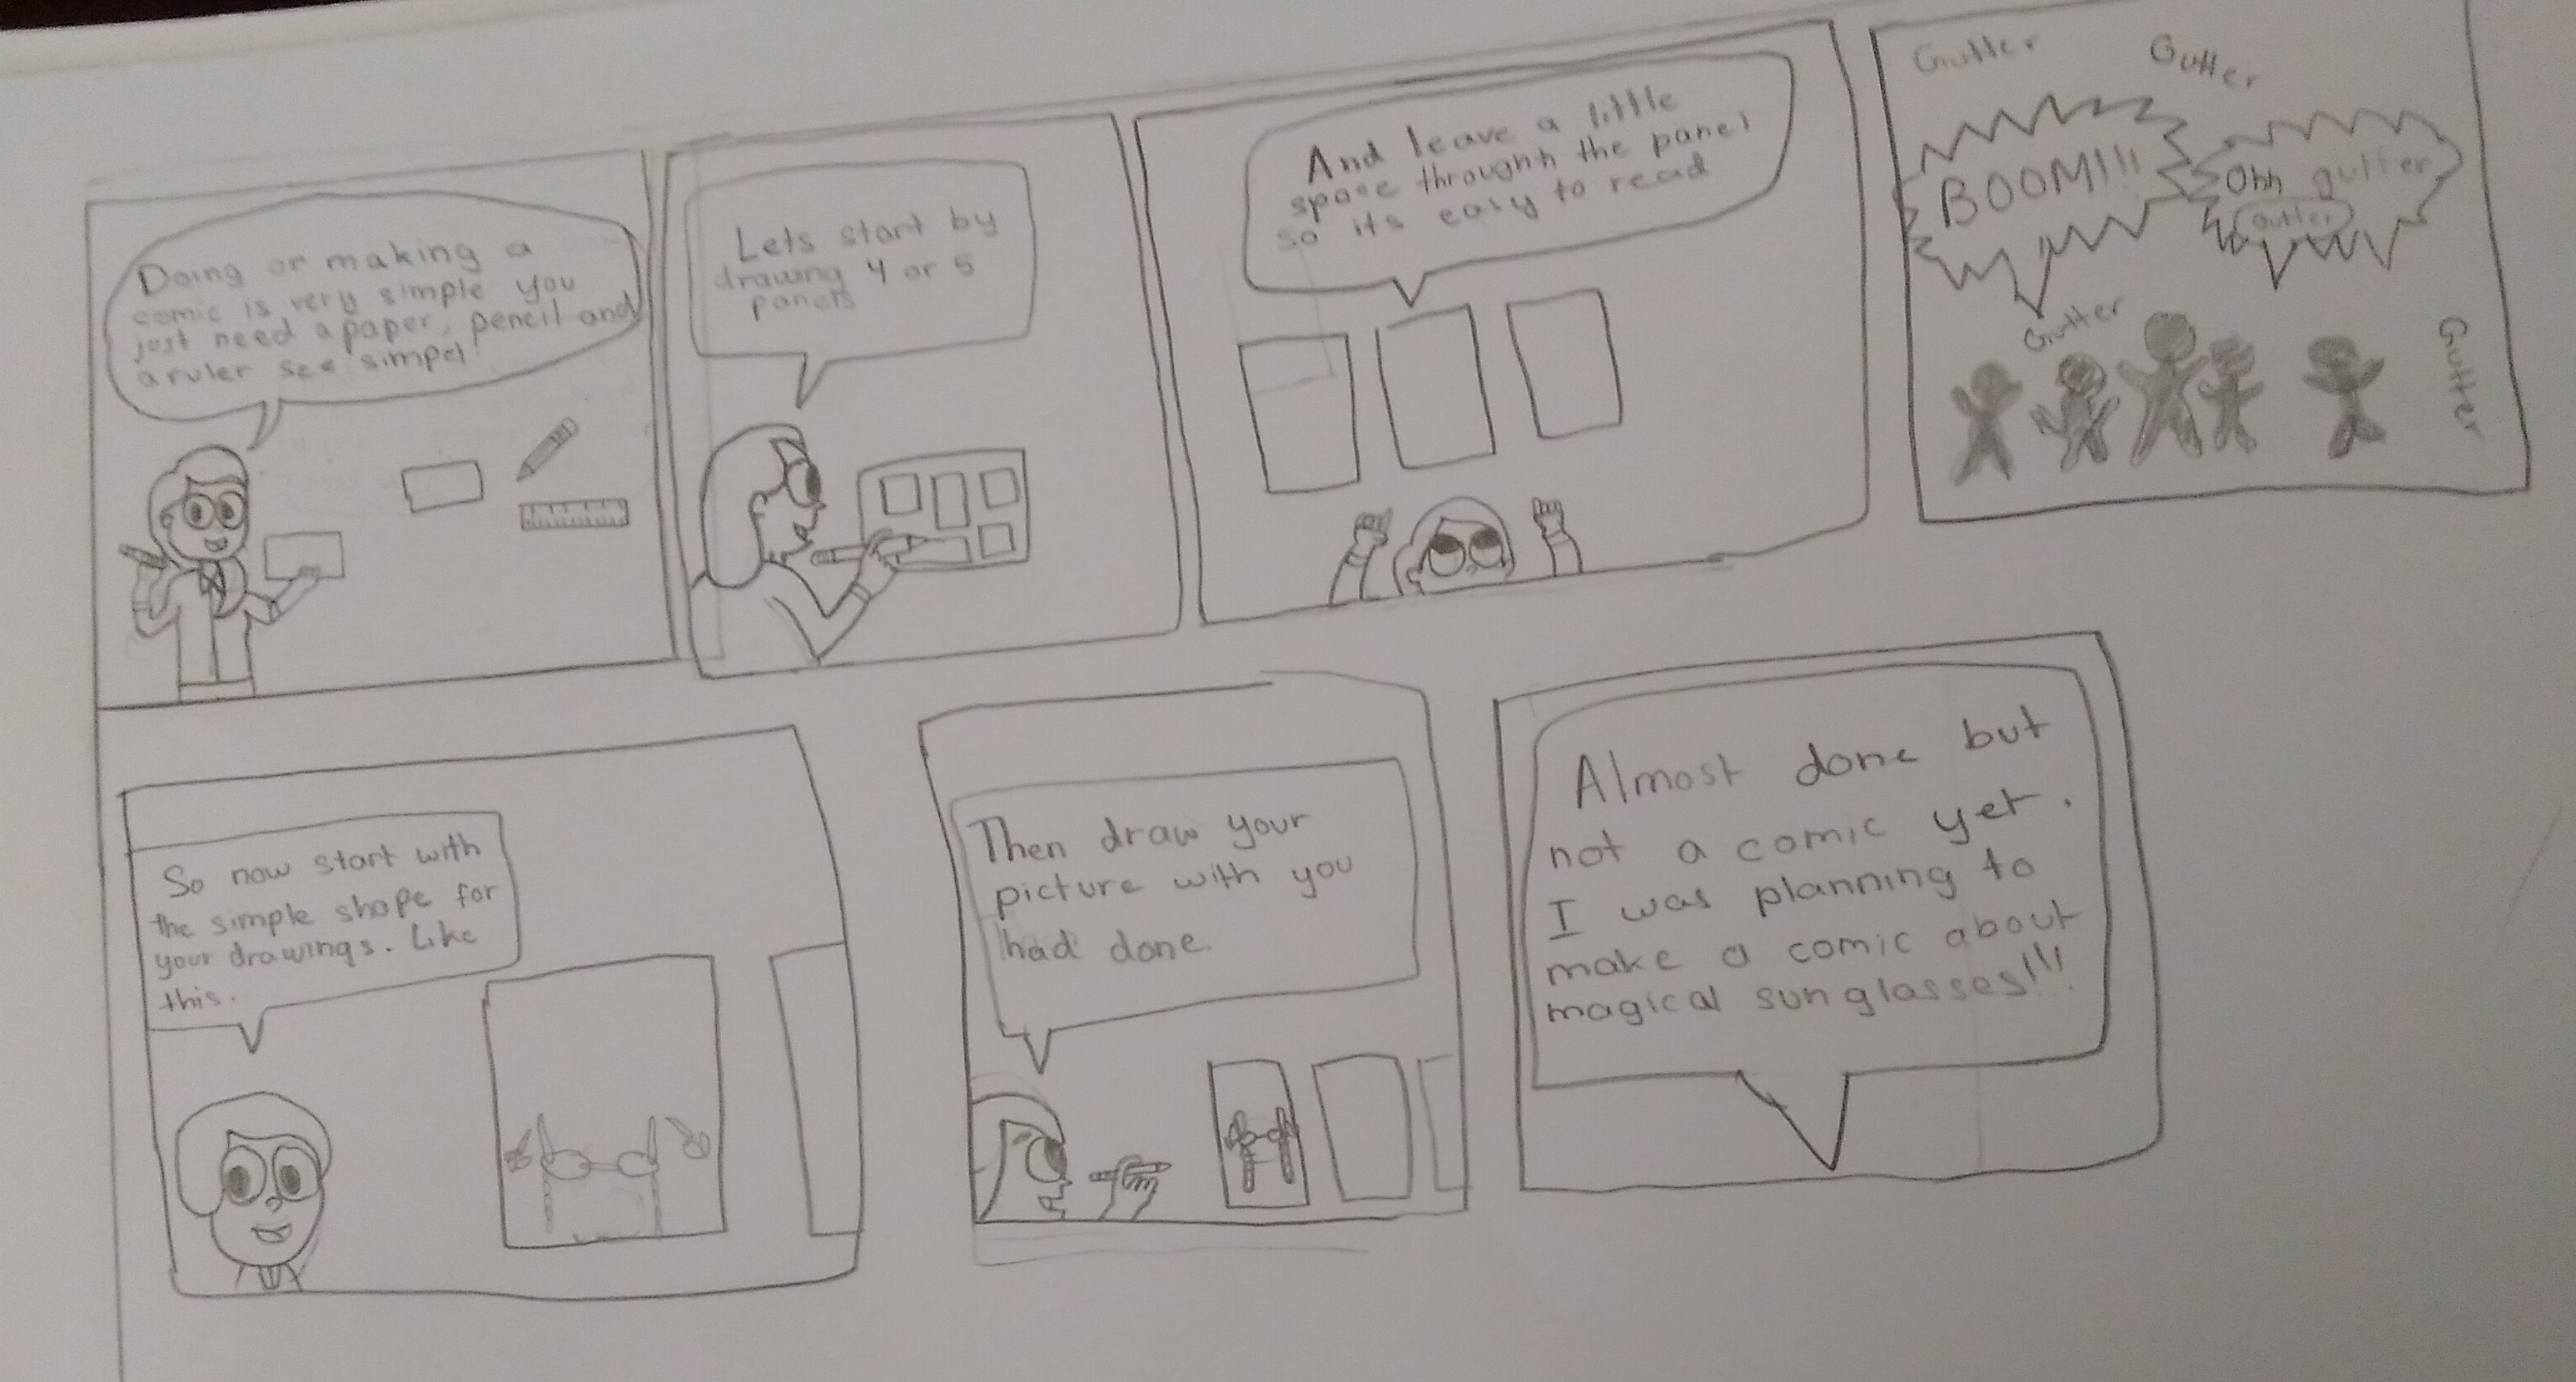 Doing or making a
comic is very simple you
just need a paper, pencil and
a ruler see simpel!
Lets start by
drawing 4 or 5
panels
And leave a little
spase throughh the panel
so its easy to read
Gutter
Gutter
BOOM!!!
Ohh gutter
Gutter
Gutter
Gutter
So now start with
the simple shape for
your drawings. Like
this.
Then draw your
picture with you
had done.
Almost done but
not a comic yet.
I was planning to
make a comic about
magical sunglasses!!!